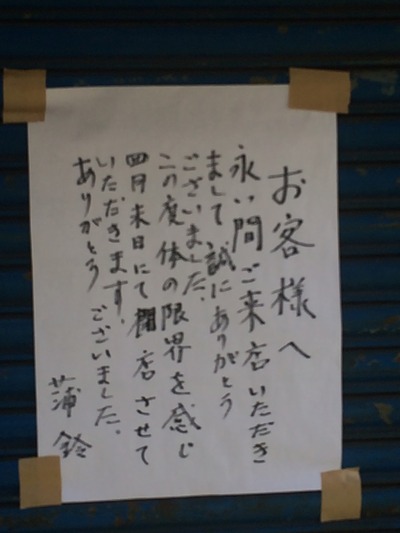 お客様へ
永い間ご来店いただき
まして、誠にありがとう
ございました。
この度体の限界を感じ
四月末日にて閉店させて
いただきます。
ありがとうございました。
蒲鈴